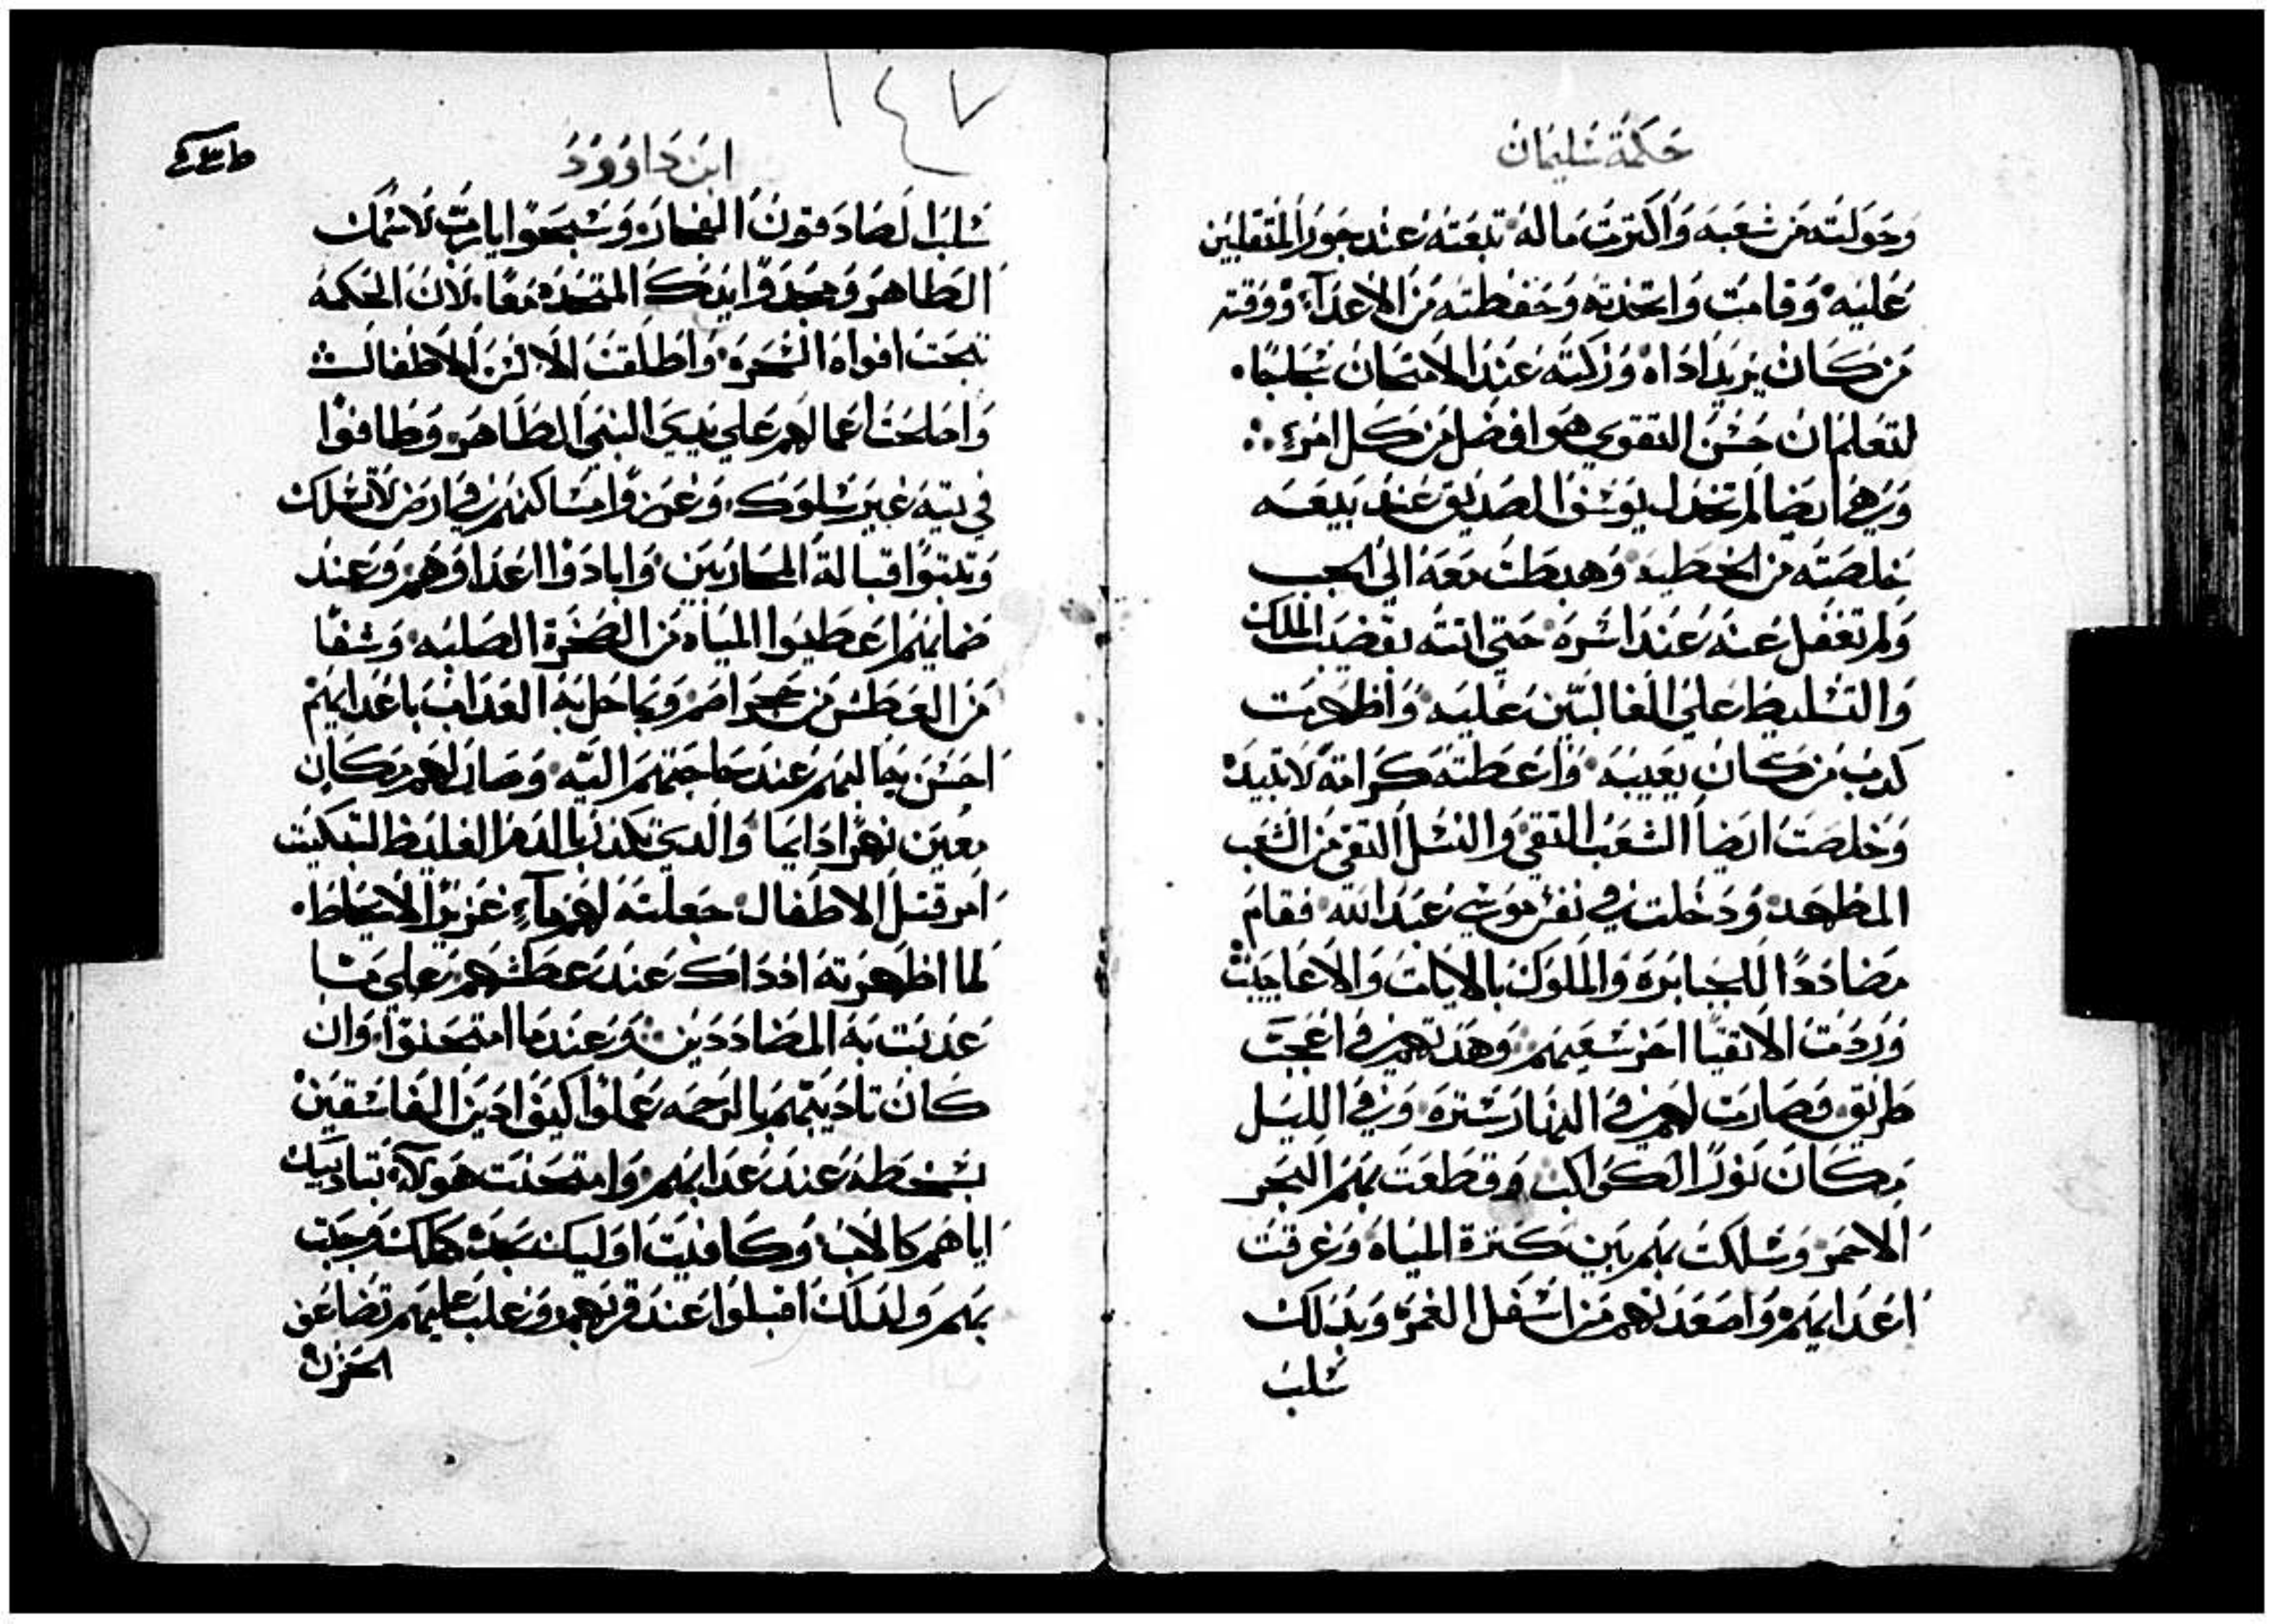 حكمة سليمان
وخولته من شعبه واكترت ماله تبعته عند جور المتقلبين
عليه وقامت واتخذته وحفظته من الاعداء ووقته
من كان يريد اداه وزكته عند الامتحان
لتعلم ان حسن التقوي هو افضل من كل امرء
وهي ايضا لم تخدل يوسف الصديق عند بيعه
خلصته من الخطيه وهبطت معه الي الجب
ولم تغفل عنه عند اسره حتي اتته بقضيب الملك
والتسليط علي الغالبين عليه واظهرت
كدب من كان يعيبه واعطته كرامة لا تبيد
وخلصت ايضا الشعب التقي والنسل النقي من الشعب
المظهد ودخلت في نفس موسي عبد الله فقام
مضاددا للجبابره والملوك بالايات والاعاجيب
وردت الاتقيا اجر شعبهم وهدتهم في اعجب
طريق وصارت لهم في النهار ستره وفي الليل
مكان نورا الكواكب وقطعت بهم البحر
الاحمر وسلكت بهم بين كترة المياه وغرقت
اعدايهم واصعدتهم من اسفل الغمر وبدلك
سلب
١٤٧
ابن داوود
سلب الصادقون الفجار وسبحوا يارب لاسمك
الطاهر ومجدوا يدك المتحده معا لان الحكمه
تحت افواه الخرس واطلقت الالسن الاطفال
واصلحت اعمالهم علي يدي النبي الطاهر وطافوا
في تيه غير سلوك وغرضوا مساكنهم في ارض لا تسلك
وتبتوا قبالة المحاربين وابادوا اعداوهم وعند
ضمايهم اعطيوا المياه من الصخرة الصلبه وشفا
من العطش من حجر اصم وبما حل به العداب باعدايهم
احسن بحالهم عند حاجتهم اليه وصار لهم مكان
معين نهرا دايما والدي تكدر بالدم الغليظ لتبكيت
امر قتل الاطفال جعلته لهم ماء غزيرا
لما اظهرته اذ داك عند عطشهم علي ما
عدبت به المضاددين وعند ما امتحنوا وان
كان تاديبهم بالرحمه علموا كيف ادين الفاسقين
بسخطه عند عدابهم وامتحنت هولاء بتاديبك
اياهم كالاب وكافيت اوليك كملك وجبت
بهم ولدلك اقبلوا عند قربهم وغلب عليهم تضاعف
الحزن